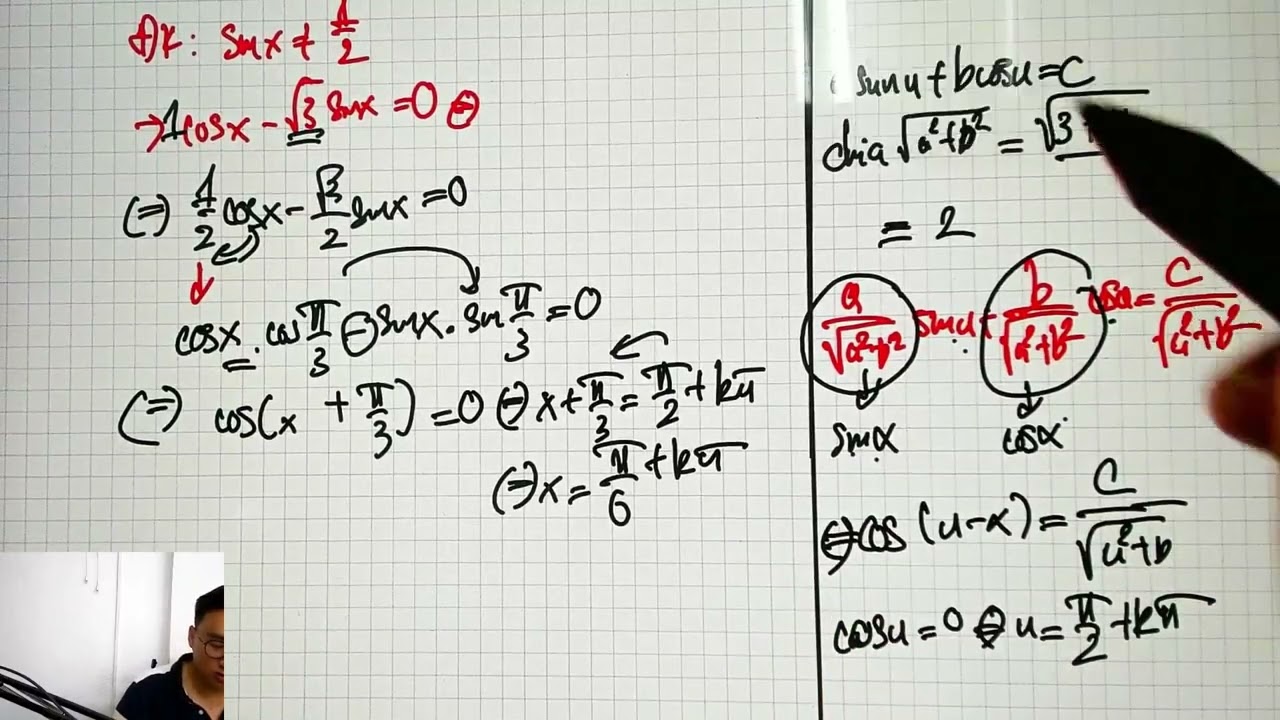 ĐK: sinx ≠ 1/2
→ 1cosx - √3 sinx = 0 ⇔
(=) 1/2 cosx - √3/2 sinx = 0
cosx . cos π/3 - sinx . sin π/3 = 0
(=) cos(x + π/3) = 0 ⇔ x + π/3 = π/2 + kπ
⇔ x = π/6 + kπ
sinu + bcosu = C
chia √a²+b² = √3
= 2
a/√a²+b² sinu + b/√a²+b² cosu = C/√a²+b²
↓ sinα ↓ cosα
⇔ cos (u-α) = C/√a²+b
cosu = 0 ⇔ u = π/2 + kπ